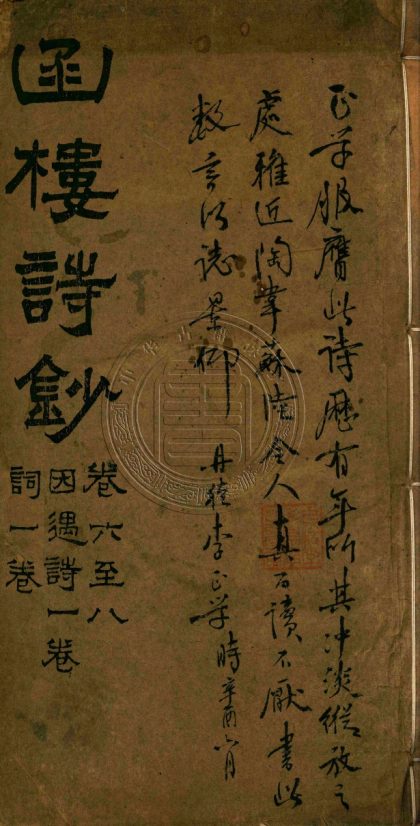 正学服膺此詩歷有年所其沖淡縱放之
處雅近陶韋蘇陸令人真百讀不厭書此
數言以誌景仰 丹稜李正学時辛酉六月
函樓詩鈔
卷六至八
因遇詩一卷
詞一卷